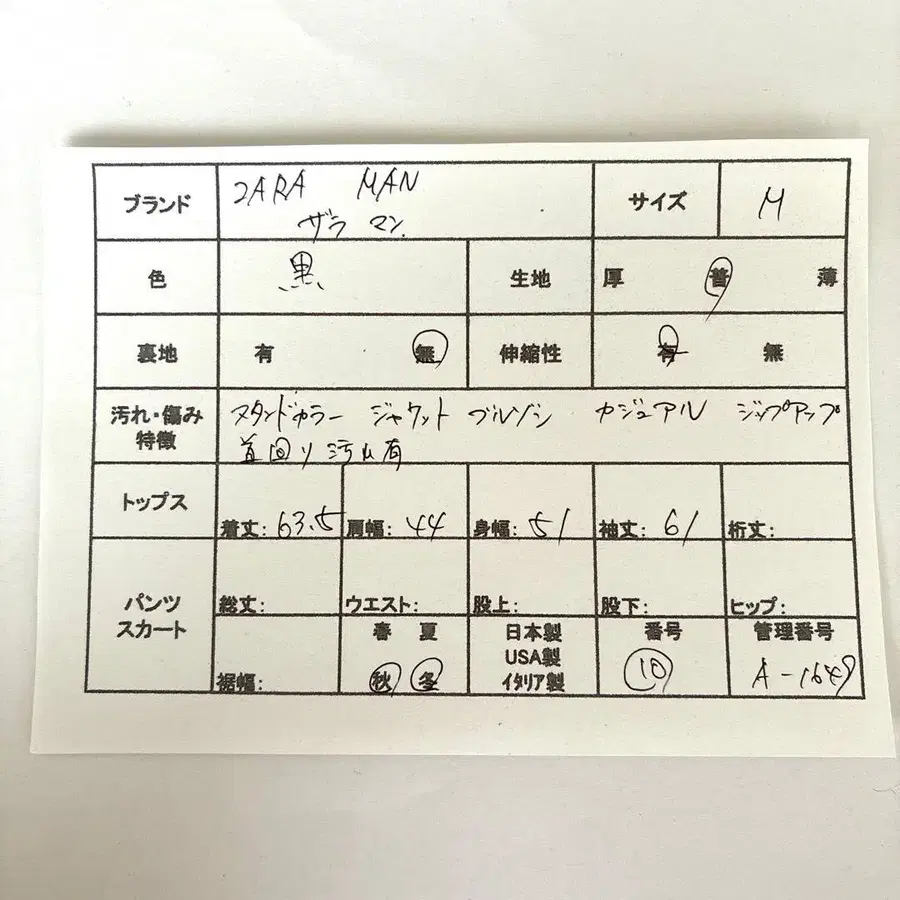 ブランド ZARA MAN サイズ M
ザラ マン.
色 黒 生地 厚 普 薄
裏地 有 無 伸縮性 有 無
汚れ・傷み スタンドカラー ジャケット ブルゾン カジュアル ジップアップ
特徴 首回り汚れ有
トップス 着丈: 63.5 肩幅: 44 身幅: 51 袖丈: 61 裄丈:
パンツ
スカート
総丈: ウエスト: 股上: 股下: ヒップ:
裾幅: 春 夏 日本製 番号 管理番号
USA製
秋 冬 イタリア製 10 A-1649